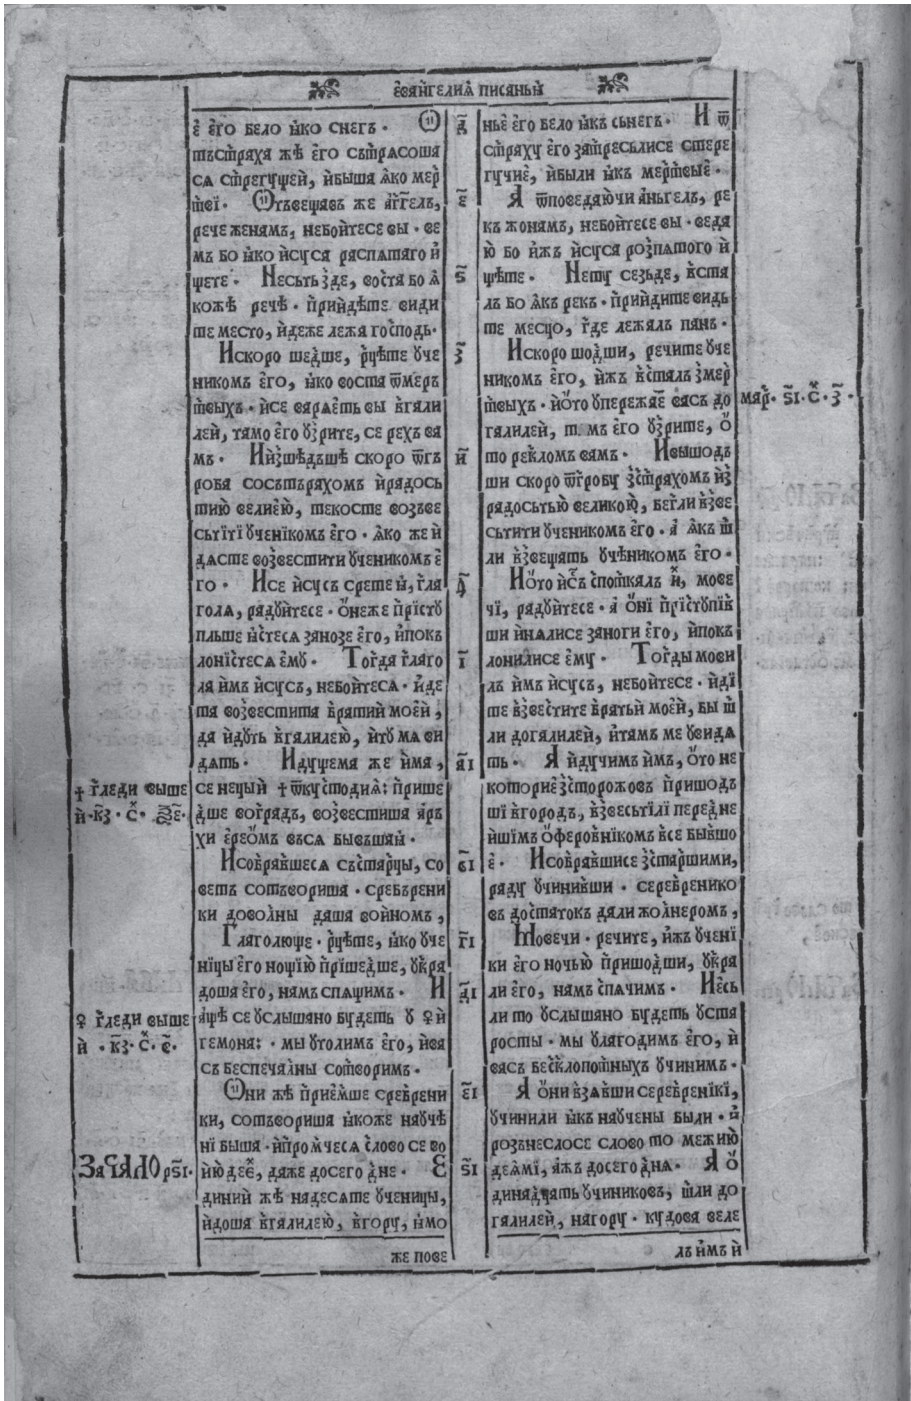 єѵа́нгелиѧ писаный
є҆ є҆го бело ꙗ҆ко снегъ · Ѿ
тъстраха же е҆го сътрѧсоша
сѧ стрегꙋщей, ѝбыша ꙗ҆ко мер
твїи · Ѿтъвещавъ же а҆г҃гелъ,
рече женамъ, небойтесе вы · ве
мъ бо ꙗ҆ко и҆сꙋса распѧтаго и҆
щете · Несьть зде, воста бо ꙗ҆
коже рече · прийдѣте види
те место, и҆деже лежа господь ·
Искоро шедше, рцѣте ᲂуче
никомъ е҆го, ꙗ҆ко воста ѿмеръ
твыхъ · ѝсе варѧеть вы вгали
лей, тамо е҆го ᲂузрите, се рехъ ва
мъ · Ии҆зшедъше скоро ѿгъ
роба сосътъряхомъ ѝрадось
тию велиею, текосте возве
сьтїтї ᲂученїкомъ е҆го · ꙗ҆ко же и҆
дѧсте возвестити ᲂучеником е҆
го · Исе и҆сꙋсъ срете ѝ, гла
голѧ, радᲂуйтесе · ѻ҆неже прїстᲂу
пльше ꙗ҆стесѧ занозе е҆го, ѝпокъ
лонїстесѧ е҆мᲂу · Тогда глаго
ла и҆мъ и҆сꙋсъ, небойтесѧ · и҆де
та возвестита братий моей,
да и҆дᲂуть вгалилею, ѝтᲂу мѧ ви
дѧть · Идꙋщема же и҆ма,
се неции ✝ ѿкꙋстодиѧ: прише
дше воградъ, возвестиша а҆ръ
хи е҆реѡмъ въсѧ бывъшаꙗ ·
Исобравшесѧ състарцы, со
веть сотъвориша · сребърени
ки доволны даша войномъ,
Глаголюще · рцѣте, ꙗ҆ко ᲂуче
нїцы е҆го нощїю прїшедше, ᲂукра
доша е҆го, намъ спѧщимъ · И
а҆ще се ᲂуслышано бꙋдеть ᲂу ♀ и҆
гемона: · мы ᲂутолимъ е҆го, ѝва
съ беспечалны сотворимъ ·
Ѻни же приемше сребрени
ки, сотъвориша ꙗ҆коже наᲂуче
нї быша · ѝпромчесѧ слово се во
и҆юдее, даже досего дне · Є
диний же надесѧте ᲂученицы,
и҆доша вгалилею, вгорꙋ, ꙗ҆мо
же пове
д҃
є҃
ѕ҃
з҃
и҃
ѳ҃
і҃
а҃і
в҃і
г҃і
д҃і
є҃і
ѕ҃і
ньє е҆го бело ꙗ҆къ сьнегъ · И ѿ
страхꙋ е҆го затреслисе стере
гꙋчие, ѝбыли ꙗ҆къ мертвые ·
А ѿповедаючи а҆ньгелъ, ре
къ жонамъ, небойтесе вы · веда
ю бо и҆жъ и҆сꙋса розпѧтого и҆
щѣте · Нетꙋ сезьде, вста
лъ бо ꙗ҆къ рекъ · прийдите видь
те месцо, где лежалъ панъ ·
Искоро шодши, речите ᲂуче
никомъ е҆го, и҆жъ всталъ змер
твыхъ · ѝѻто ᲂупережае васъ до
галилей, т мъ е҆го ᲂузрите, ѻ҆
то рекломъ вамъ · Ивышодъ
ши скоро ѿгробꙋ зстрахомъ ѝз
радосьтью великою, бегли взве
сьтити ᲂучеником е҆го · а҆ ꙗ҆къ ш
ли взвещать ᲂучеником е҆го ·
Иѻто и҆съ споткалъ и҆х, мове
чї, радᲂуйтесе · а҆ ѻ҆нї прїстᲂупїв
ши ѝнѧлисе заноги е҆го, ѝпокъ
лонилисе е҆мꙋ · Тогды мови
лъ и҆мъ и҆сꙋсъ, небойтесе · и҆дї
те взвестите братьи моей, бы ш
ли догалилей, ѝтамъ ме ᲂувидѧ
ть · А и҆дꙋчимъ и҆мъ, ѻто не
которие зсторожовъ пришодъ
шї вгородъ, взвесьтїлї передне
йшїмъ ѻферовнїкомъ все бывшо
е · Исобравшисе зстаршими,
радꙋ ᲂучинивши · серебренико
въ достатокъ дали жолнеромъ,
Мовечи · речите, и҆жъ ᲂученї
ки е҆го ночью пришодши, ᲂукра
ли е҆го, намъ спѧчимъ · Иесь
ли то ᲂуслышано бꙋдеть ᲂу ста
росты · мы ᲂулагодимъ е҆го, и҆
васъ бесклопотныхъ ᲂучинимъ ·
А ѻ҆ни взѧвши серебренїкї,
ᲂучинили ꙗ҆къ наᲂучены были · и҆
розънеслосе слово то межию
деами, ажъ досего днѧ · А ѻ҆
динадцать ᲂучиниковъ, шли до
галилей, нагорꙋ · кꙋдова веле
лъ и҆мъ и҆
мар҃ · ѕ҃і · с҃х · з҃ ·
✝ гледи выше
и҆ · к҃з · с҃х · ѯ҃є ·
♀ гледи выше
и҆ · к҃з · с҃х · є҃ ·
Зачало рѕ҃і ·